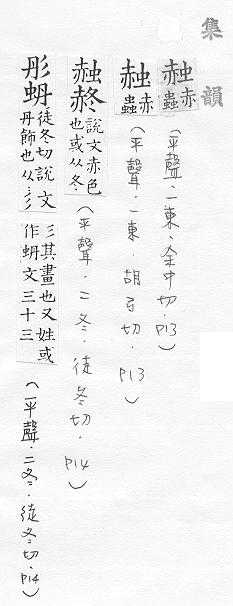 集韻
赨赤蟲(平聲.一東.余中切.P13)
赨赤蟲(平聲.一東.胡弓切.P13)
赨說文赤色也或从冬(平聲.二冬.徒冬切.P14)
彤蚒徒冬切說文丹飾也从彡彡其畫也又姓或作蚒文三十三(平聲.二冬.徒冬切.P14)